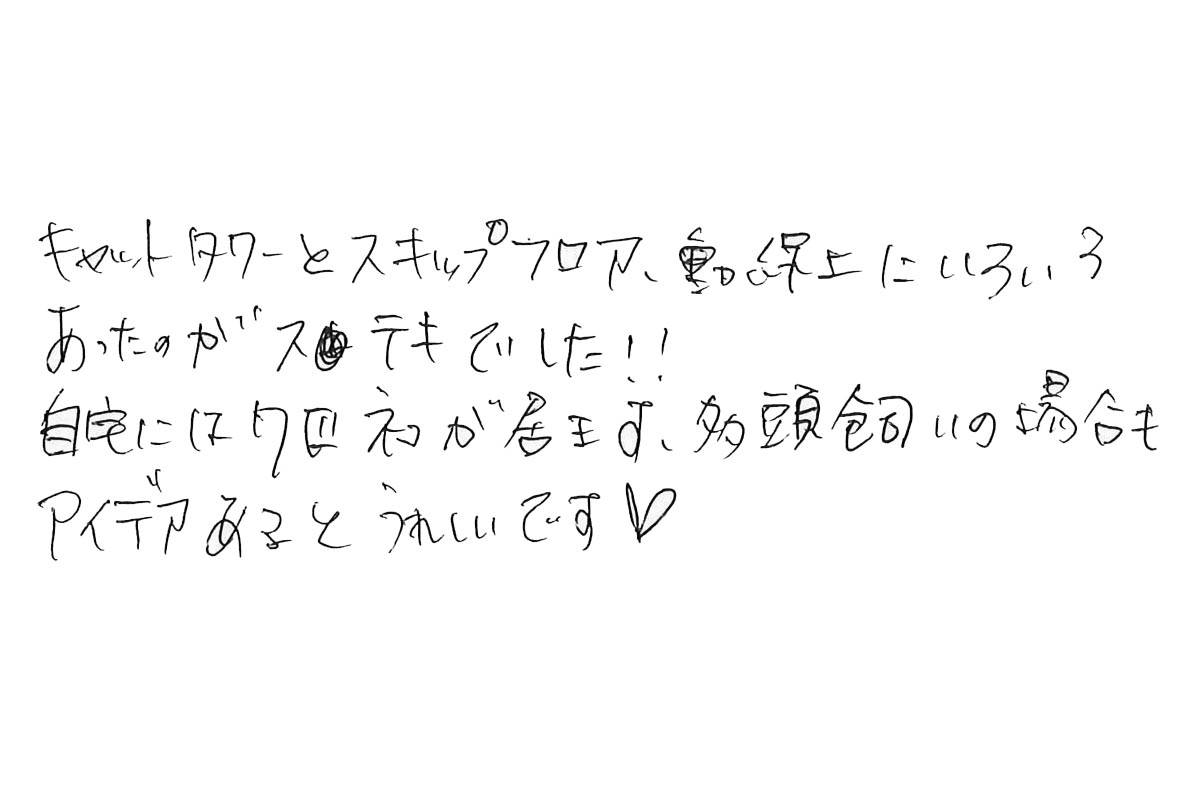 キャットタワーとスキップフロア、動線上にいろいろ
あったのがステキでした!!
自宅には7匹ネコが居ます、多頭飼いの場合も
アイデアあるとうれしいです♡